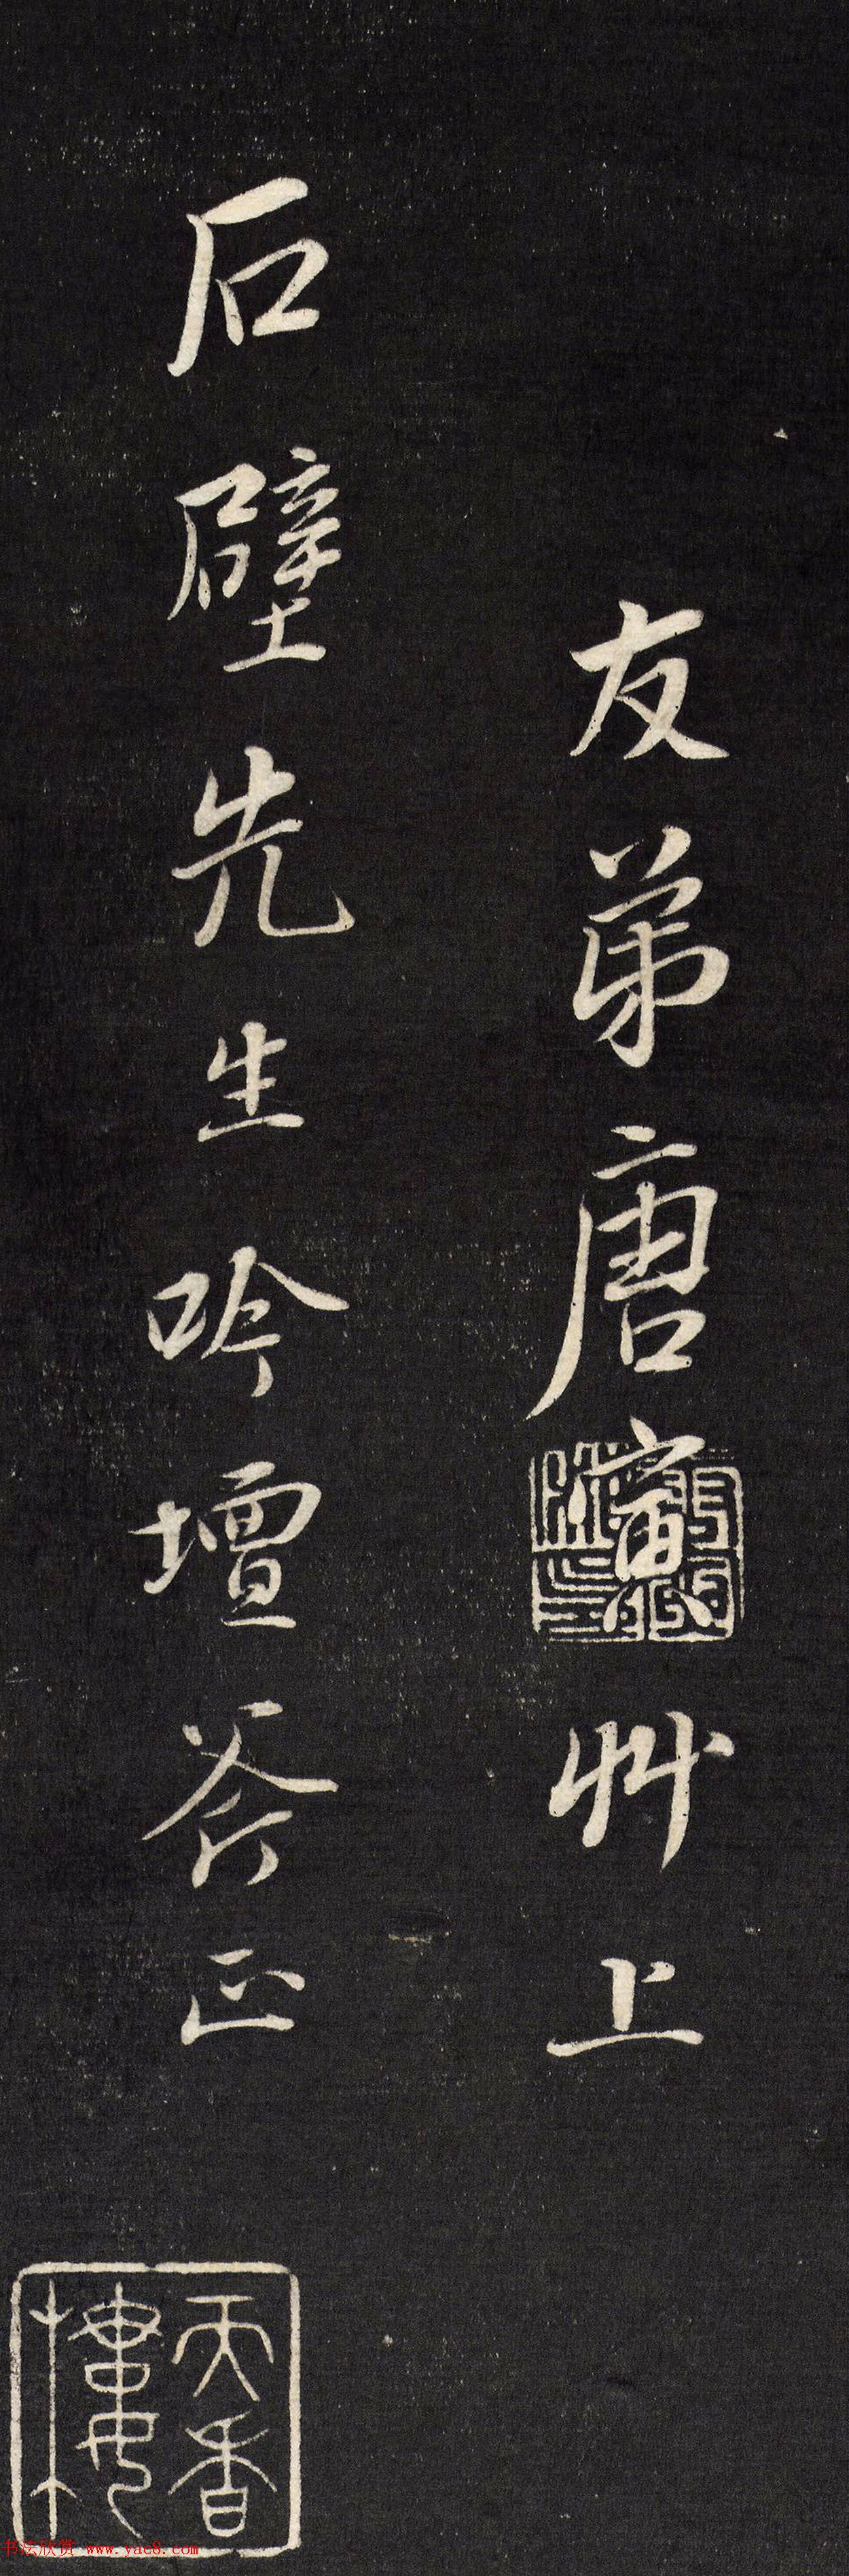 友弟唐寅艸上
石壁先生吟壇斧正
天香樓
书法欣赏 www.yac8.com